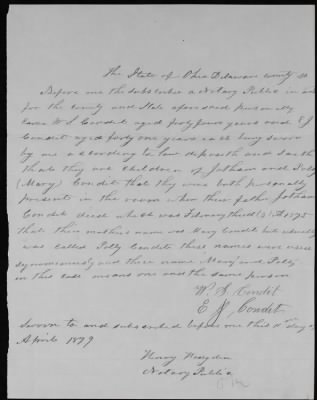 The State of Ohio Delaware county ss
Before me the subscriber a Notary Public in and
for the county and State aforesaid personally
came W S Condit aged forty four years and E J
Condit aged forty one years each being sworn
by me according to law deposeth and saith
that they are children of Jotham and Polly
(Mary) Condit that they were both personally
present in the room when their father Jotham
Condit died which was February third (3) 1875
that their mothers name was Mary Condit but usually
was called Polly Condit these names were used
synonymously and these name Mary and Polly
in this case means one and the same person
W. S. Condit
E J Condit
Sworn to and subscribed before me this 11th day of
April 1879
Henry
Notary Public